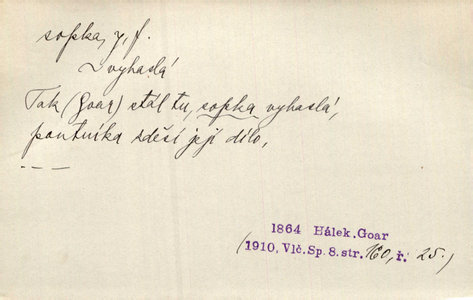 sopka, y, f.
~ vyhaslá
Tak (Goar) stál tu, sopka vyhaslá,
poutníka zděsí její dílo,
– – –
1864 Hálek.Goar
(1910, Vlč.Sp.8.str. 160, ř. 25.)